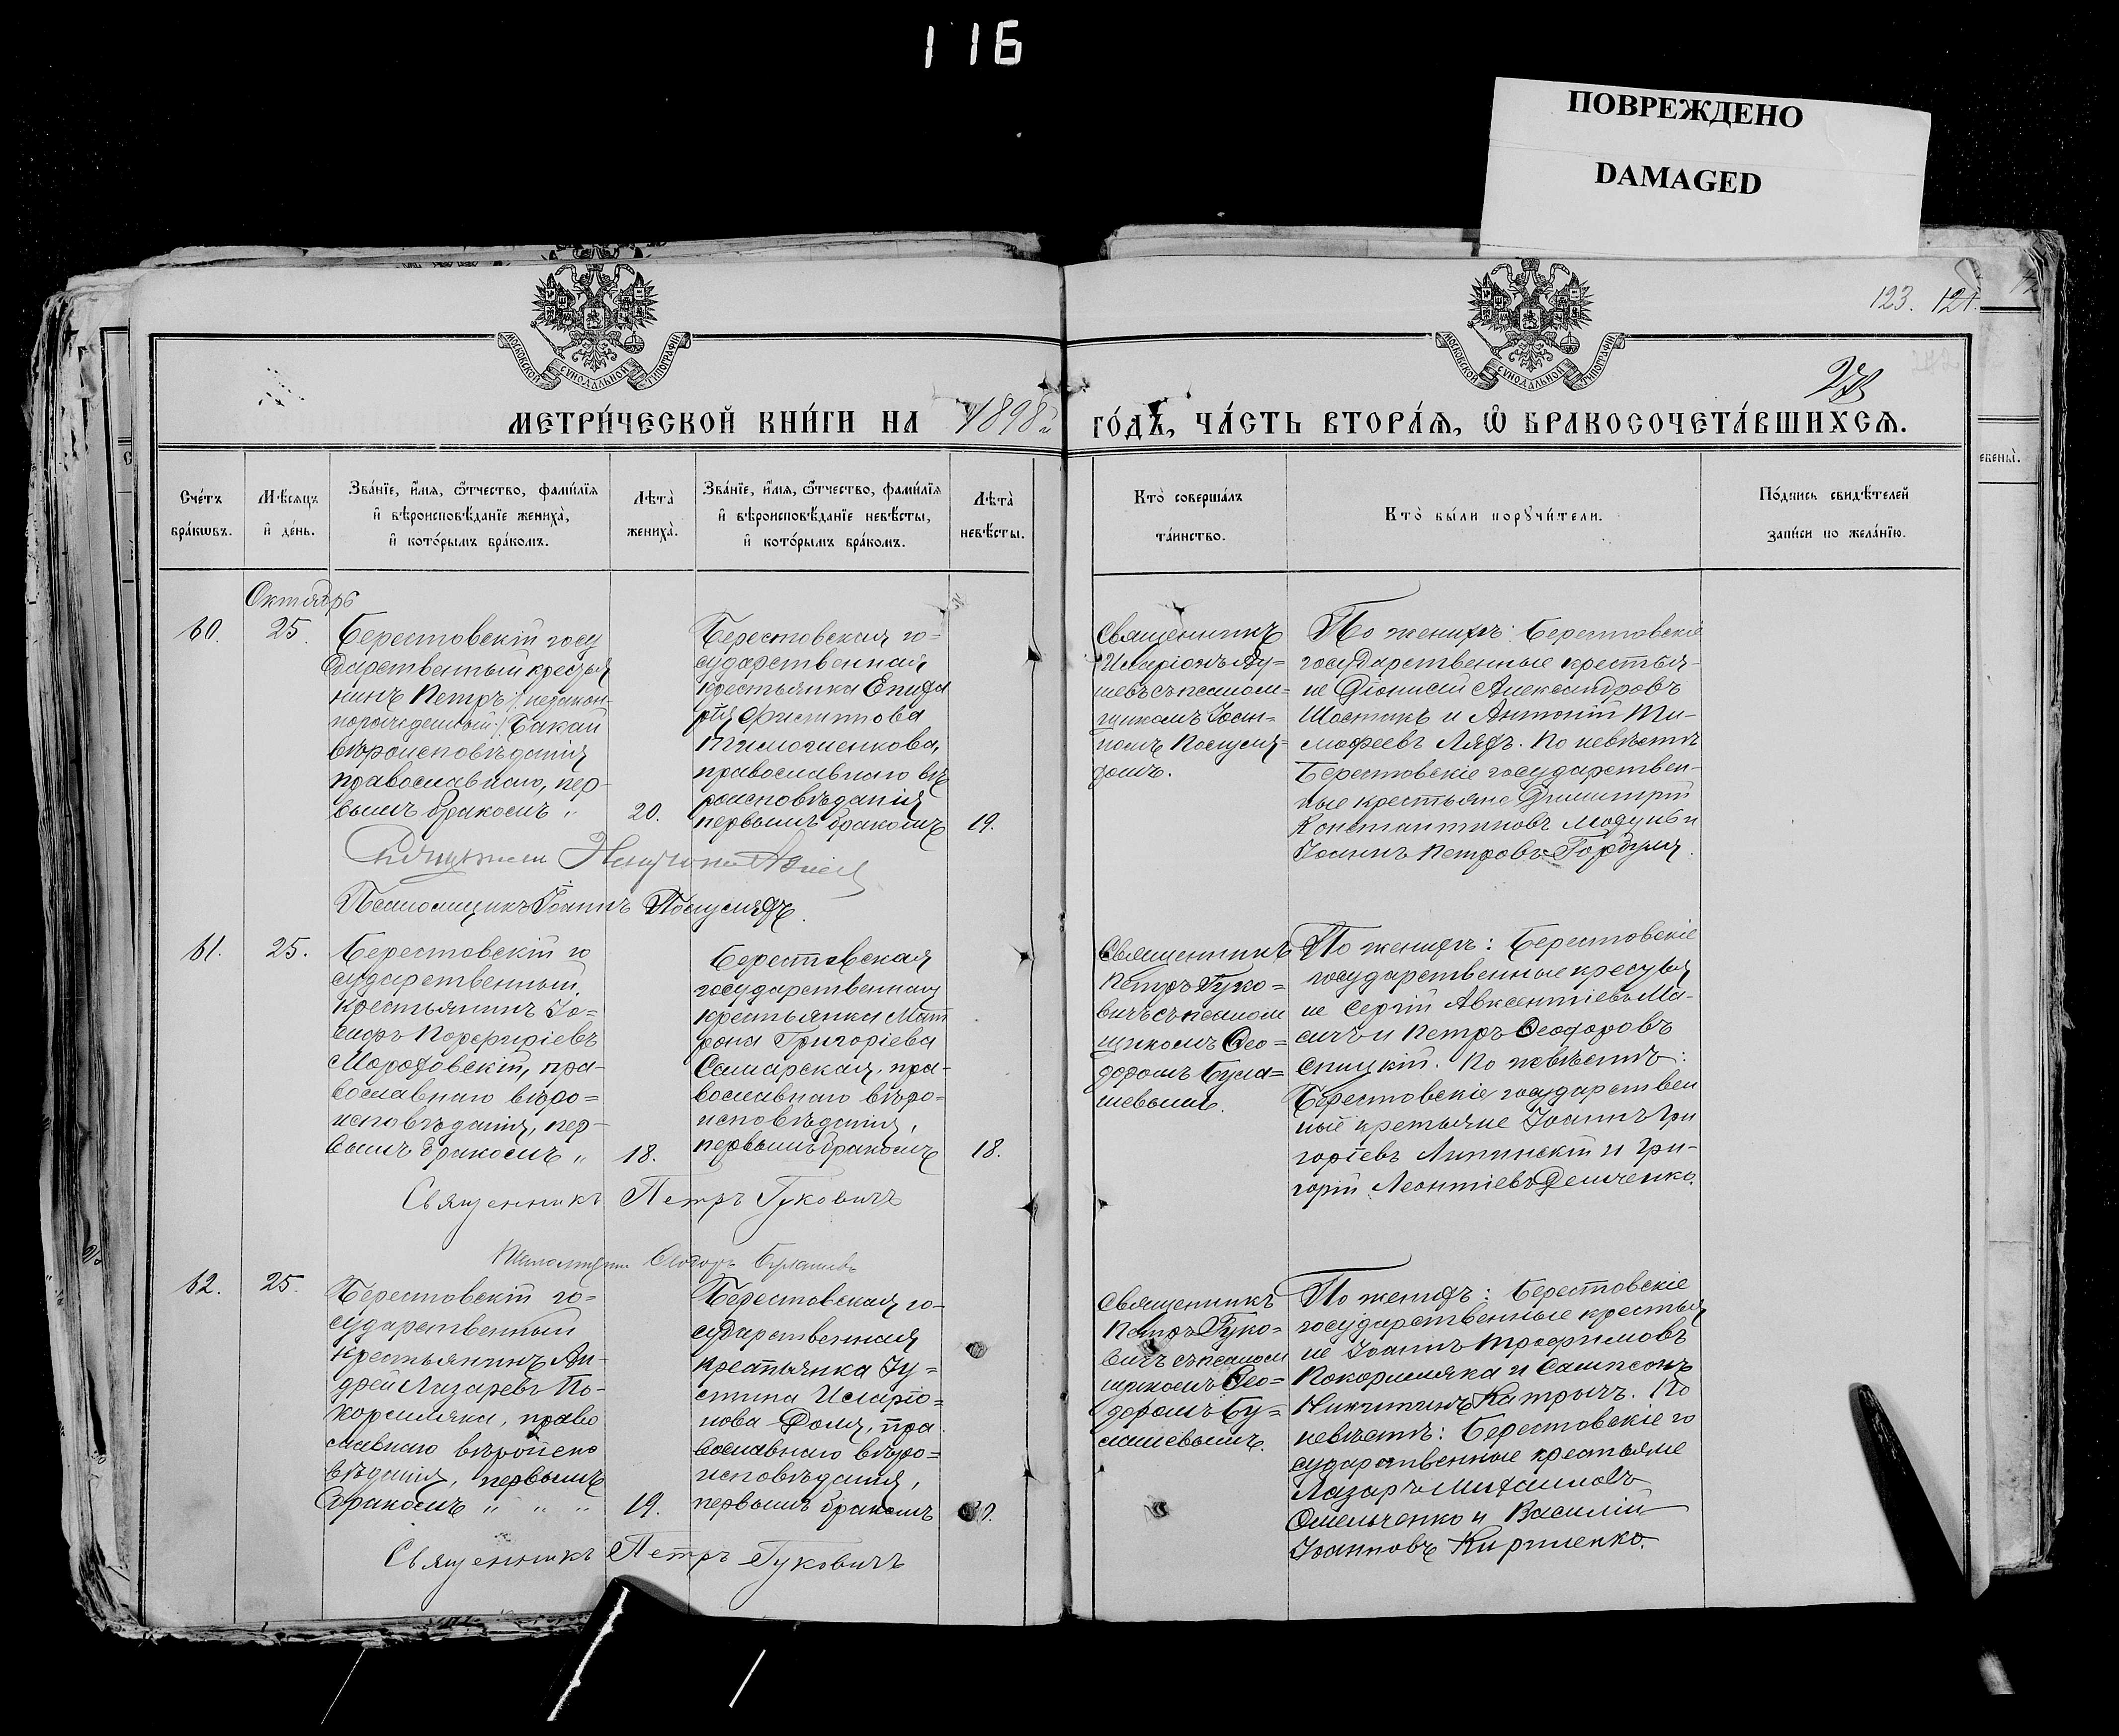 116
ПОВРЕЖДЕНО
DAMAGED
123. 121.
МОСКОВСКОЙ СУНОДАЛЬНОЙ ТИПОГРАФІИ
МОСКОВСКОЙ СУНОДАЛЬНОЙ ТИПОГРАФІИ
МЕТРИ́ЧЕСКОЙ КНИ́ГИ НА 1898 го́дъ, ча́сть втора́ѧ, ѽ бракосочета́вшихсѧ.
Сче́тъ
бра́кѡвъ.
Мѣ́сѧцъ
и҆ де́нь.
Зва́нїе, и҆́мѧ, ѻ҆́тчество, фами́лїѧ
и҆ вѣроисповѣ́данїе жениха̀,
и҆ кото́рымъ бра́комъ.
Лѣта̀
жениха̀.
Зва́нїе, и҆́мѧ, ѻ҆́тчество, фами́лїѧ
и҆ вѣроисповѣ́данїе невѣ́сты,
и҆ кото́рымъ бра́комъ.
Лѣта̀
невѣ́сты.
Кто̀ соверша́лъ
та́инство.
Кто̀ бы́ли порꙋчи́тели.
По́дпись свидѣ́телей
за́писи по жела́нїю.
Октябрь
60.
25.
Берестовскій госу
дарственный крестья
нинъ Петръ /: незакон-
норожденный :/ Бакай
вѣроисповѣданія
православнаго, пер-
вымъ бракомъ „
20.
Берестовская го=
сударственная
крестьянка Епифа
рія Филиппова
Тимошенкова,
православнаго вѣ
роисповѣданія
первымъ бракомъ
19.
Священникъ
Иларіонъ
шевъ съ псалом=
щикомъ Іоан=
номъ Послуш
По женихѣ: Берестовскіе
государственные крестья-
не Діонисій Александровъ
Шостакъ и Антоній Ти-
мофеевъ Лядъ. По невѣстѣ
Берестовскіе государствен-
ные крестьяне Димитрій
Константиновъ и
Іоаннъ Петровъ Горбуля.
Псаломщикъ Іоаннъ
61.
25.
Берестовскій го
сударственный
крестьянинъ Іо=
сифъ Порфиріевъ
Мордовскій, пра-
вославнаго вѣро=
исповѣданія, пер-
вымъ бракомъ „
18.
Берестовская
государственная
крестьянка Мат
рона Григоріева
Самарская, пра-
вославнаго вѣро=
исповѣданія,
первымъ бракомъ
18.
Священникъ
Петръ Гуко=
вичъ съ псалом
щикомъ Ѳео=
доромъ Була=
шевымъ.
По женихѣ: Берестовскіе
государственные крестья
не Сергій Авксентіевъ Ма-
и Петръ Ѳеодоровъ
Спицкій. По невѣстѣ:
Берестовскіе государствен
ные крестьяне Іоаннъ Гри
горіевъ Липинскій и Гри-
горій Леонтіевъ Демченко.
Священникъ Петръ Гуковичъ
Псаломщикъ Ѳеодоръ Булашевъ
62.
25.
Берестовскій го=
сударственный
крестьянинъ Ан-
дрей Лазаревъ По-
кормляка, право
славнаго вѣроиспо
вѣданія, первымъ
бракомъ „ „ „
19.
Берестовская го-
сударственная
крестьянка Іу=
стина Иларіо=
нова Доля, пра
вославнаго вѣро=
исповѣданія,
первымъ бракомъ
Священникъ
Петръ Гуко=
вичъ съ псалом
щикомъ Ѳео=
доромъ Бу=
лашевымъ.
По женихѣ: Берестовскіе
государственные крестья
не Іоаннъ Трофимовъ
Покормляка и Сампсонъ
Никитинъ Катричъ. По
невѣстѣ: Берестовскіе го
сударственные крестьяне
Лазарь Михаиловъ
Омельченко и Василій
Іоанновъ Кириенко.
Священникъ Петръ Гуковичъ